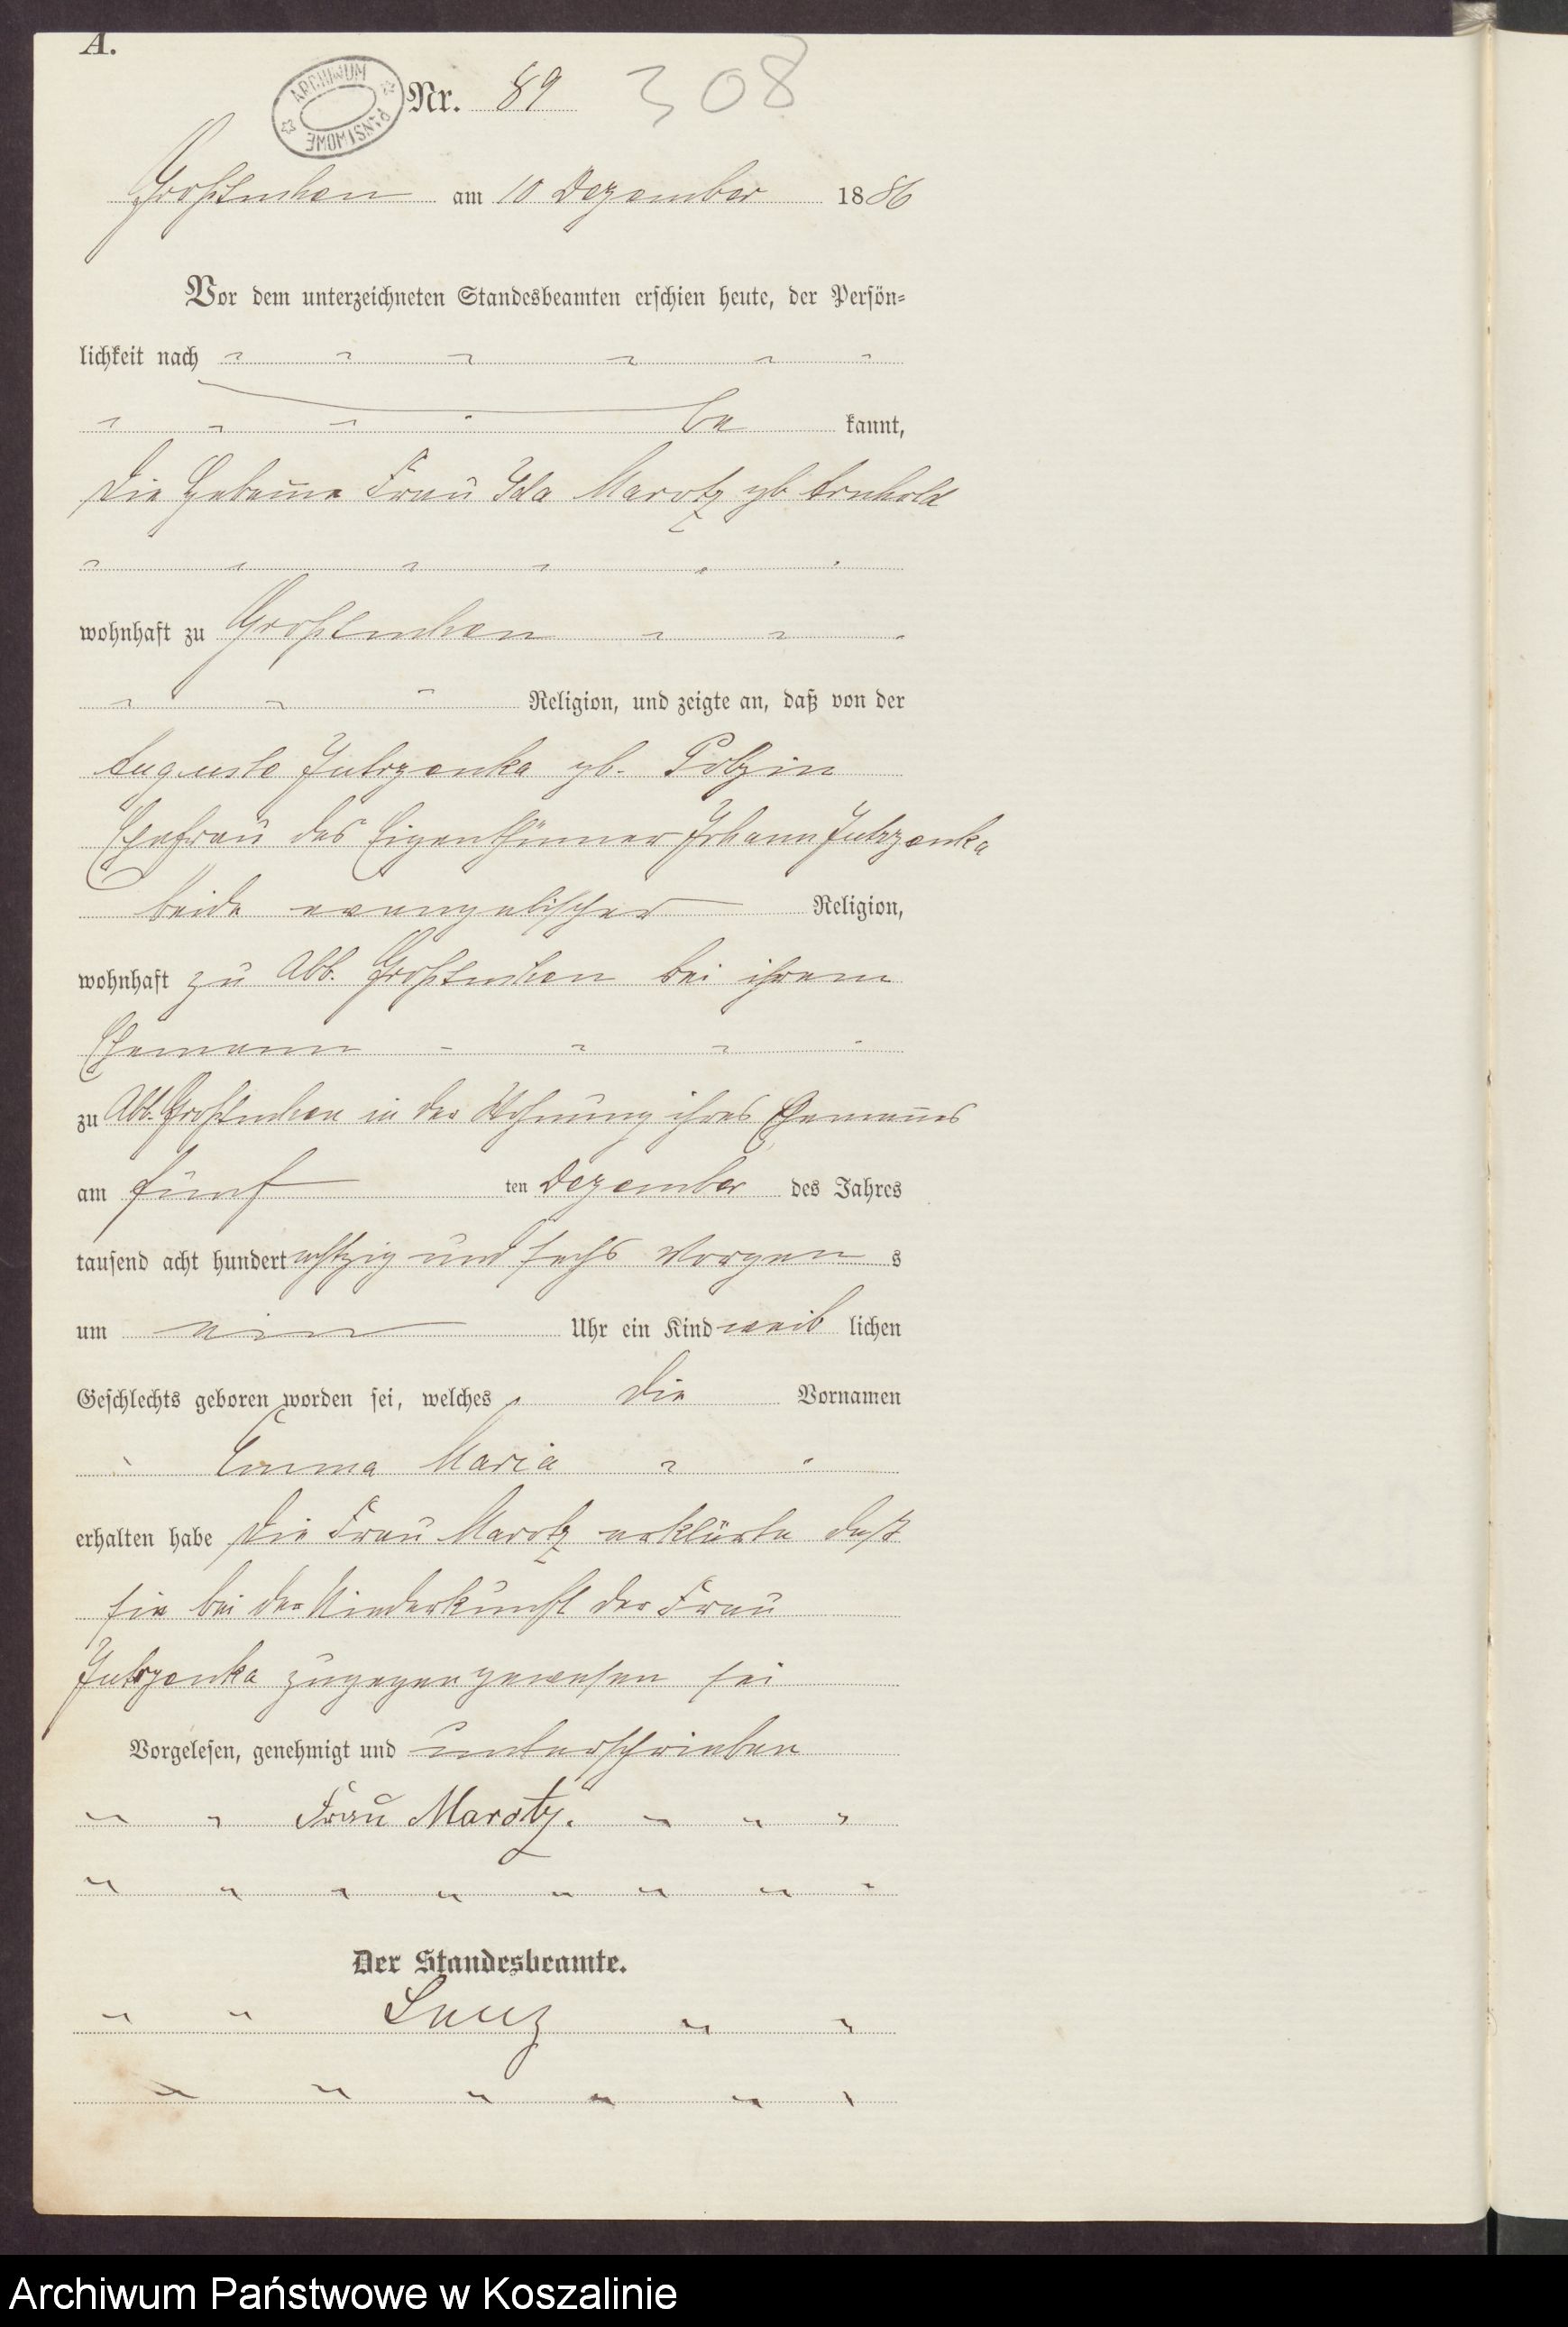 A.
ARCHIWUM PAŃSTWOWE
Nr. 89 308
Großtuchen am 10 Dezember 1886
Vor dem unterzeichneten Standesbeamten erschien heute, der Persön=
lichkeit nach
be kannt,
die Hebeam̅e Frau Ida Marotz gb Arnhold
wohnhaft zu Großtuchen
Religion, und zeigte an, daß von der
Auguste Jutrzenka gb. Polzin
Ehefrau des Eigenthümer Johann Jutrzenka
beide evangelischer Religion,
wohnhaft zu Abb. Großtuchen bei ihrem
Ehemann
zu Abb. Großtuchen in der Wohnung ihres Ehemannes
am fünf ten Dezember des Jahres
tausend acht hundert achtzig und sechs Morgen s
um ein Uhr ein Kind weib lichen
Geschlechts geboren worden sei, welches die Vornamen
Emma Maria
erhalten habe die Frau Marotz erklärte daß
sie bei der Niederkunft der Frau
Jutrzenka zugegen gewesen sei
Vorgelesen, genehmigt und unterschrieben
Frau Marotz.
Der Standesbeamte.
Archiwum Państwowe w Koszalinie